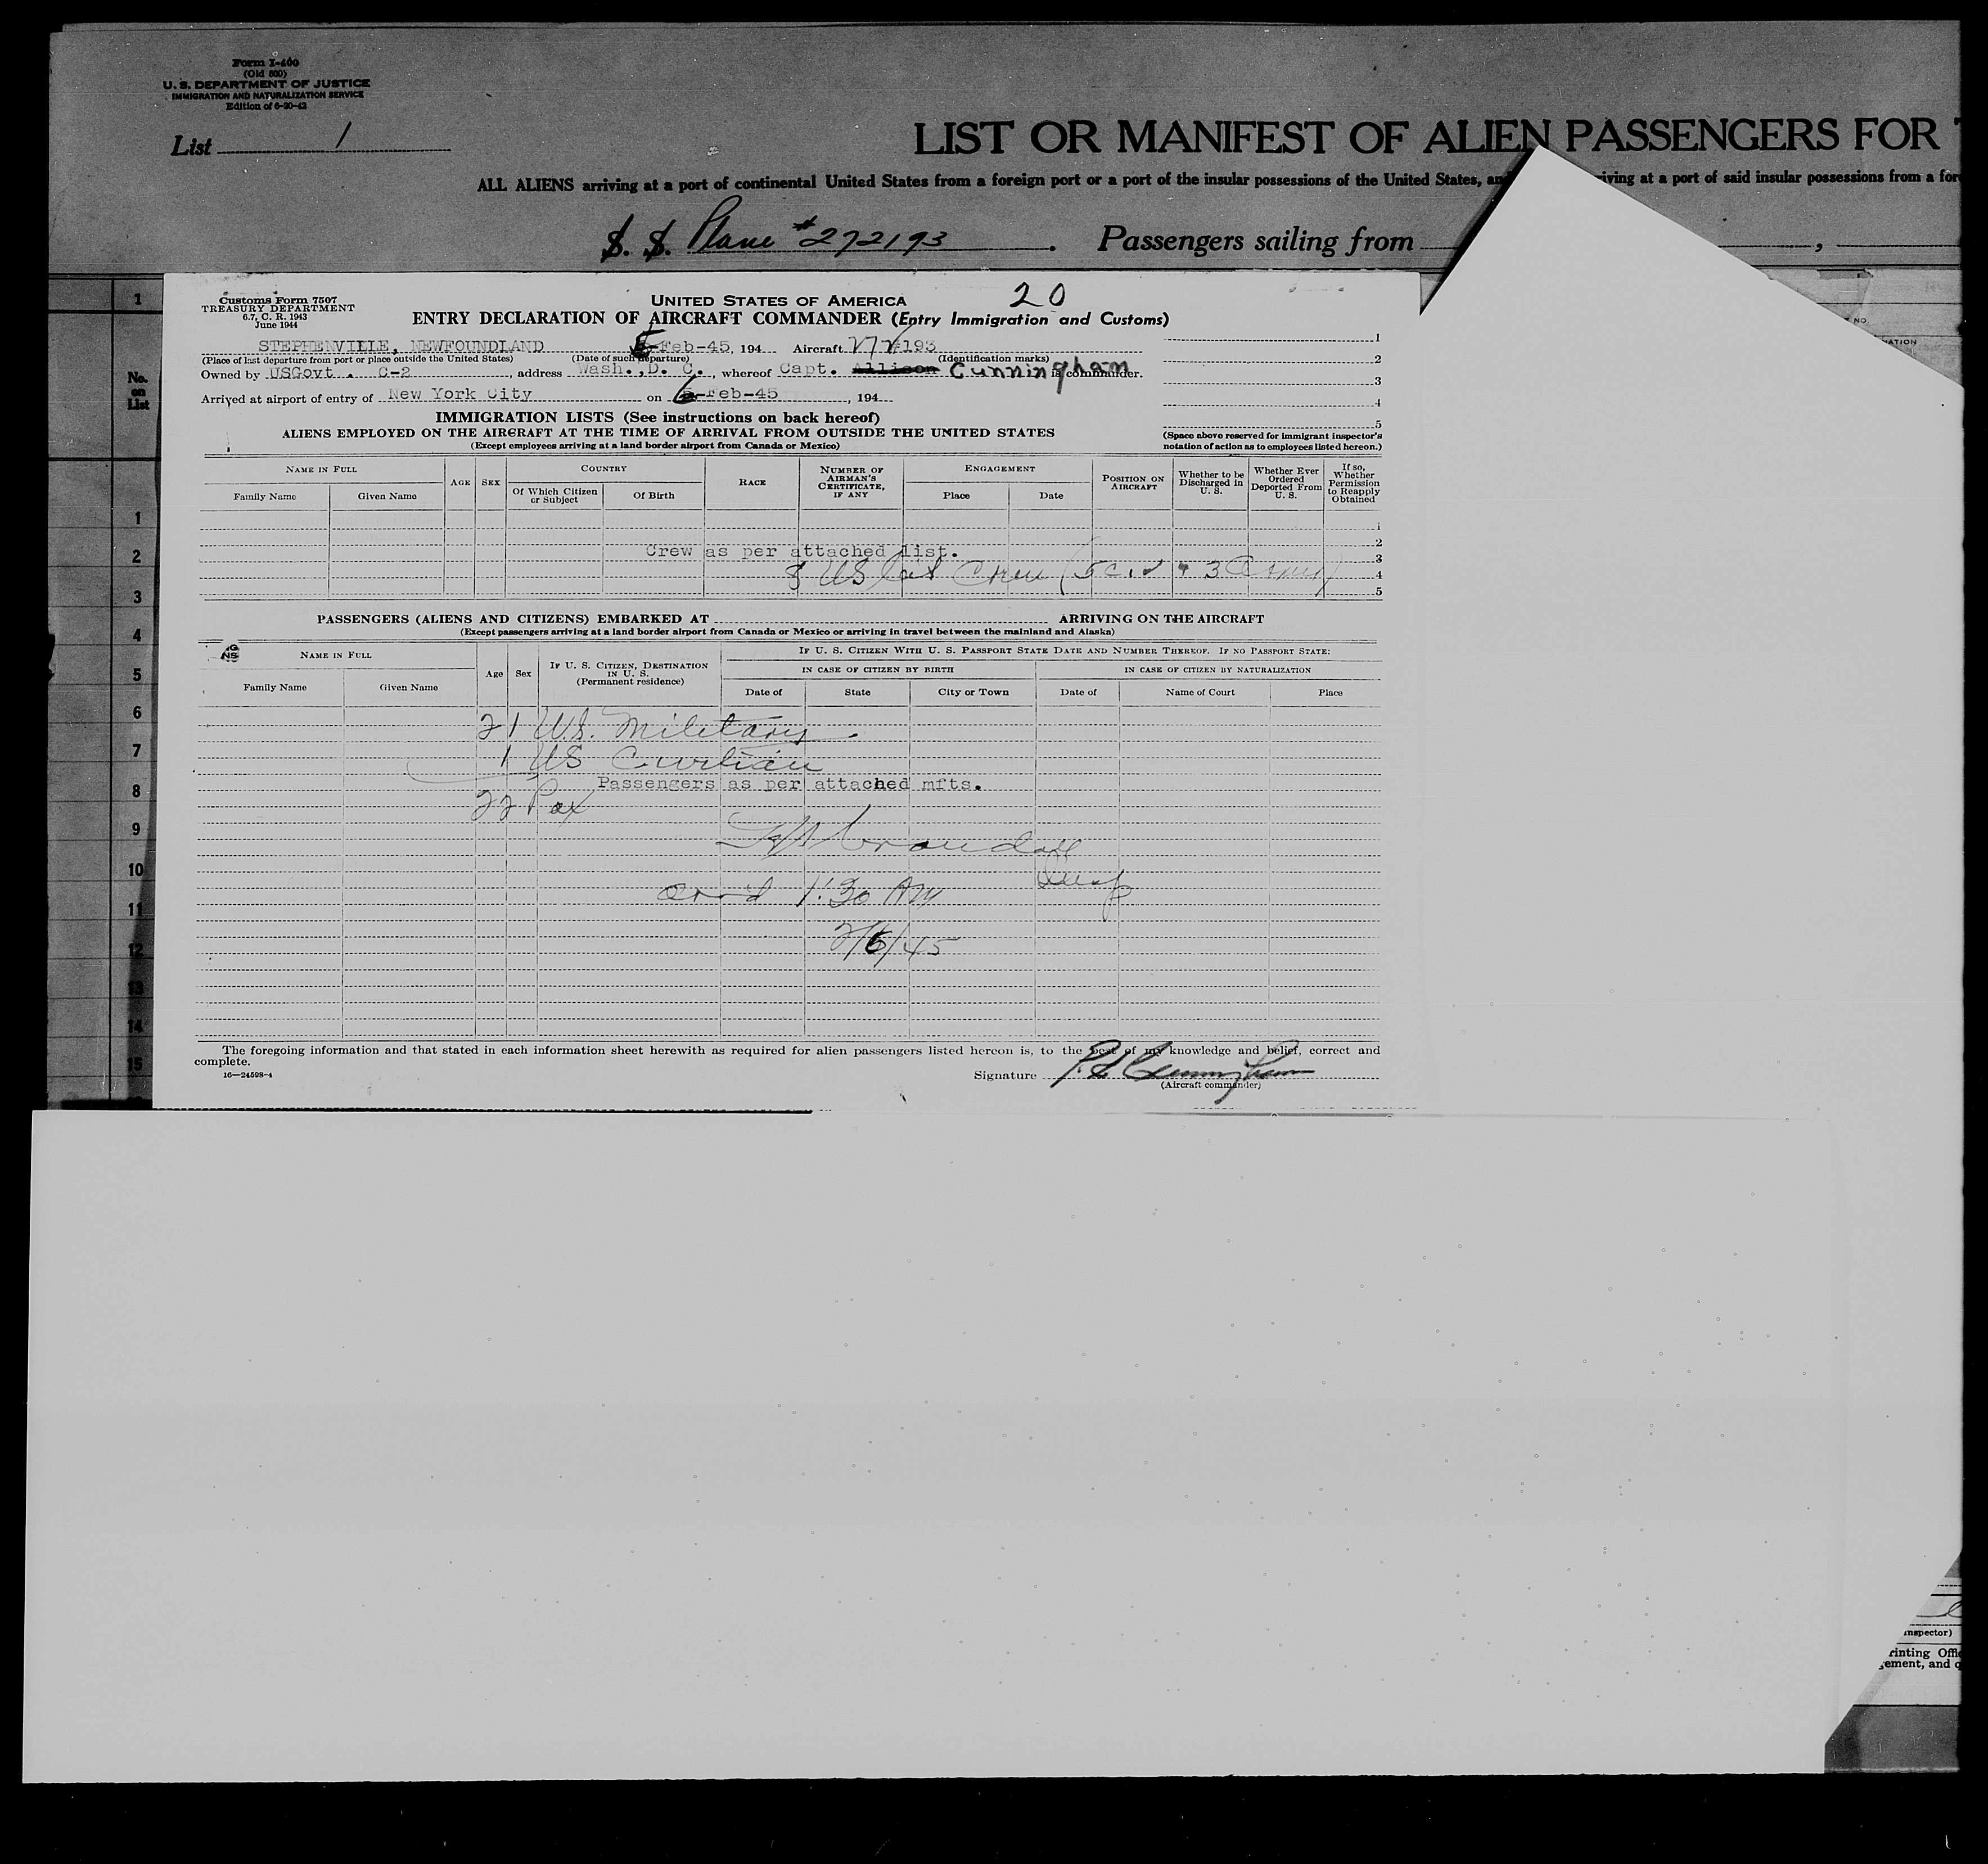 Form I-400
(Old 500)
U. S. DEPARTMENT OF JUSTICE
IMMIGRATION AND NATURALIZATION SERVICE
Edition of 6-20-42
List 1
LIST OR MANIFEST OF ALIEN PASSENGERS FOR
ALL ALIENS arriving at a port of continental United States from a foreign port or a port of the insular possessions of the United States, an iving at a port of said insular possessions from a for
S. S. Plane #272193 . Passengers sailing from ,
Customs Form 7507
TREASURY DEPARTMENT
6.7, C. R. 1943
June 1944
UNITED STATES OF AMERICA 20
ENTRY DECLARATION OF AIRCRAFT COMMANDER (Entry Immigration and Customs)
STEPHENVILLE, NEWFOUNDLAND 5-Feb-45, 194 Aircraft 272193
(Place of last departure from port or place outside the United States) (Date of such departure) (Identification marks)
Owned by USGovt . C-2 , address Wash.,D. C. , whereof Capt. Allison Cunningham is commander.
Arrived at airport of entry of New York City on 6-Feb-45 , 194
1
2
3
4
5
(Space above reserved for immigrant inspector's
notation of action as to employees listed hereon.)
IMMIGRATION LISTS (See instructions on back hereof)
ALIENS EMPLOYED ON THE AIRCRAFT AT THE TIME OF ARRIVAL FROM OUTSIDE THE UNITED STATES
(Except employees arriving at a land border airport from Canada or Mexico)
NAME IN FULL
Family Name Given Name
AGE SEX
COUNTRY
Of Which Citizen or Subject Of Birth
RACE
NUMBER OF AIRMAN'S CERTIFICATE, IF ANY
ENGAGEMENT
Place Date
POSITION ON AIRCRAFT
Whether to be Discharged in U. S.
Whether Ever Ordered Deported From U. S.
If so, Whether Permission to Reapply Obtained
1
2
Crew as per attached list.
3
8 US Crew (5 4
5
PASSENGERS (ALIENS AND CITIZENS) EMBARKED AT ARRIVING ON THE AIRCRAFT
(Except passengers arriving at a land border airport from Canada or Mexico or arriving in travel between the mainland and Alaska)
NAME IN FULL
Family Name Given Name
Age Sex
IF U. S. CITIZEN, DESTINATION IN U. S.
(Permanent residence)
IF U. S. CITIZEN WITH U. S. PASSPORT STATE DATE AND NUMBER THEREOF. IF NO PASSPORT STATE:
IN CASE OF CITIZEN BY BIRTH IN CASE OF CITIZEN BY NATURALIZATION
Date of State City or Town Date of Name of Court Place
21 U.S. Military.
1 US Civilian
Passengers as per attached mfts.
22 Pax
Crandall
Insp
arr'd 1:30 AM
2/6/45
The foregoing information and that stated in each information sheet herewith as required for alien passengers listed hereon is, to the best of my knowledge and belief, correct and
complete.
16—24598-4
Signature Cunningham
(Aircraft commander)
No. on List
1
1
2
3
4
5
6
7
8
9
10
11
12
13
14
15
NO.
ATION
nspector)
rinting Offi
gement, and q